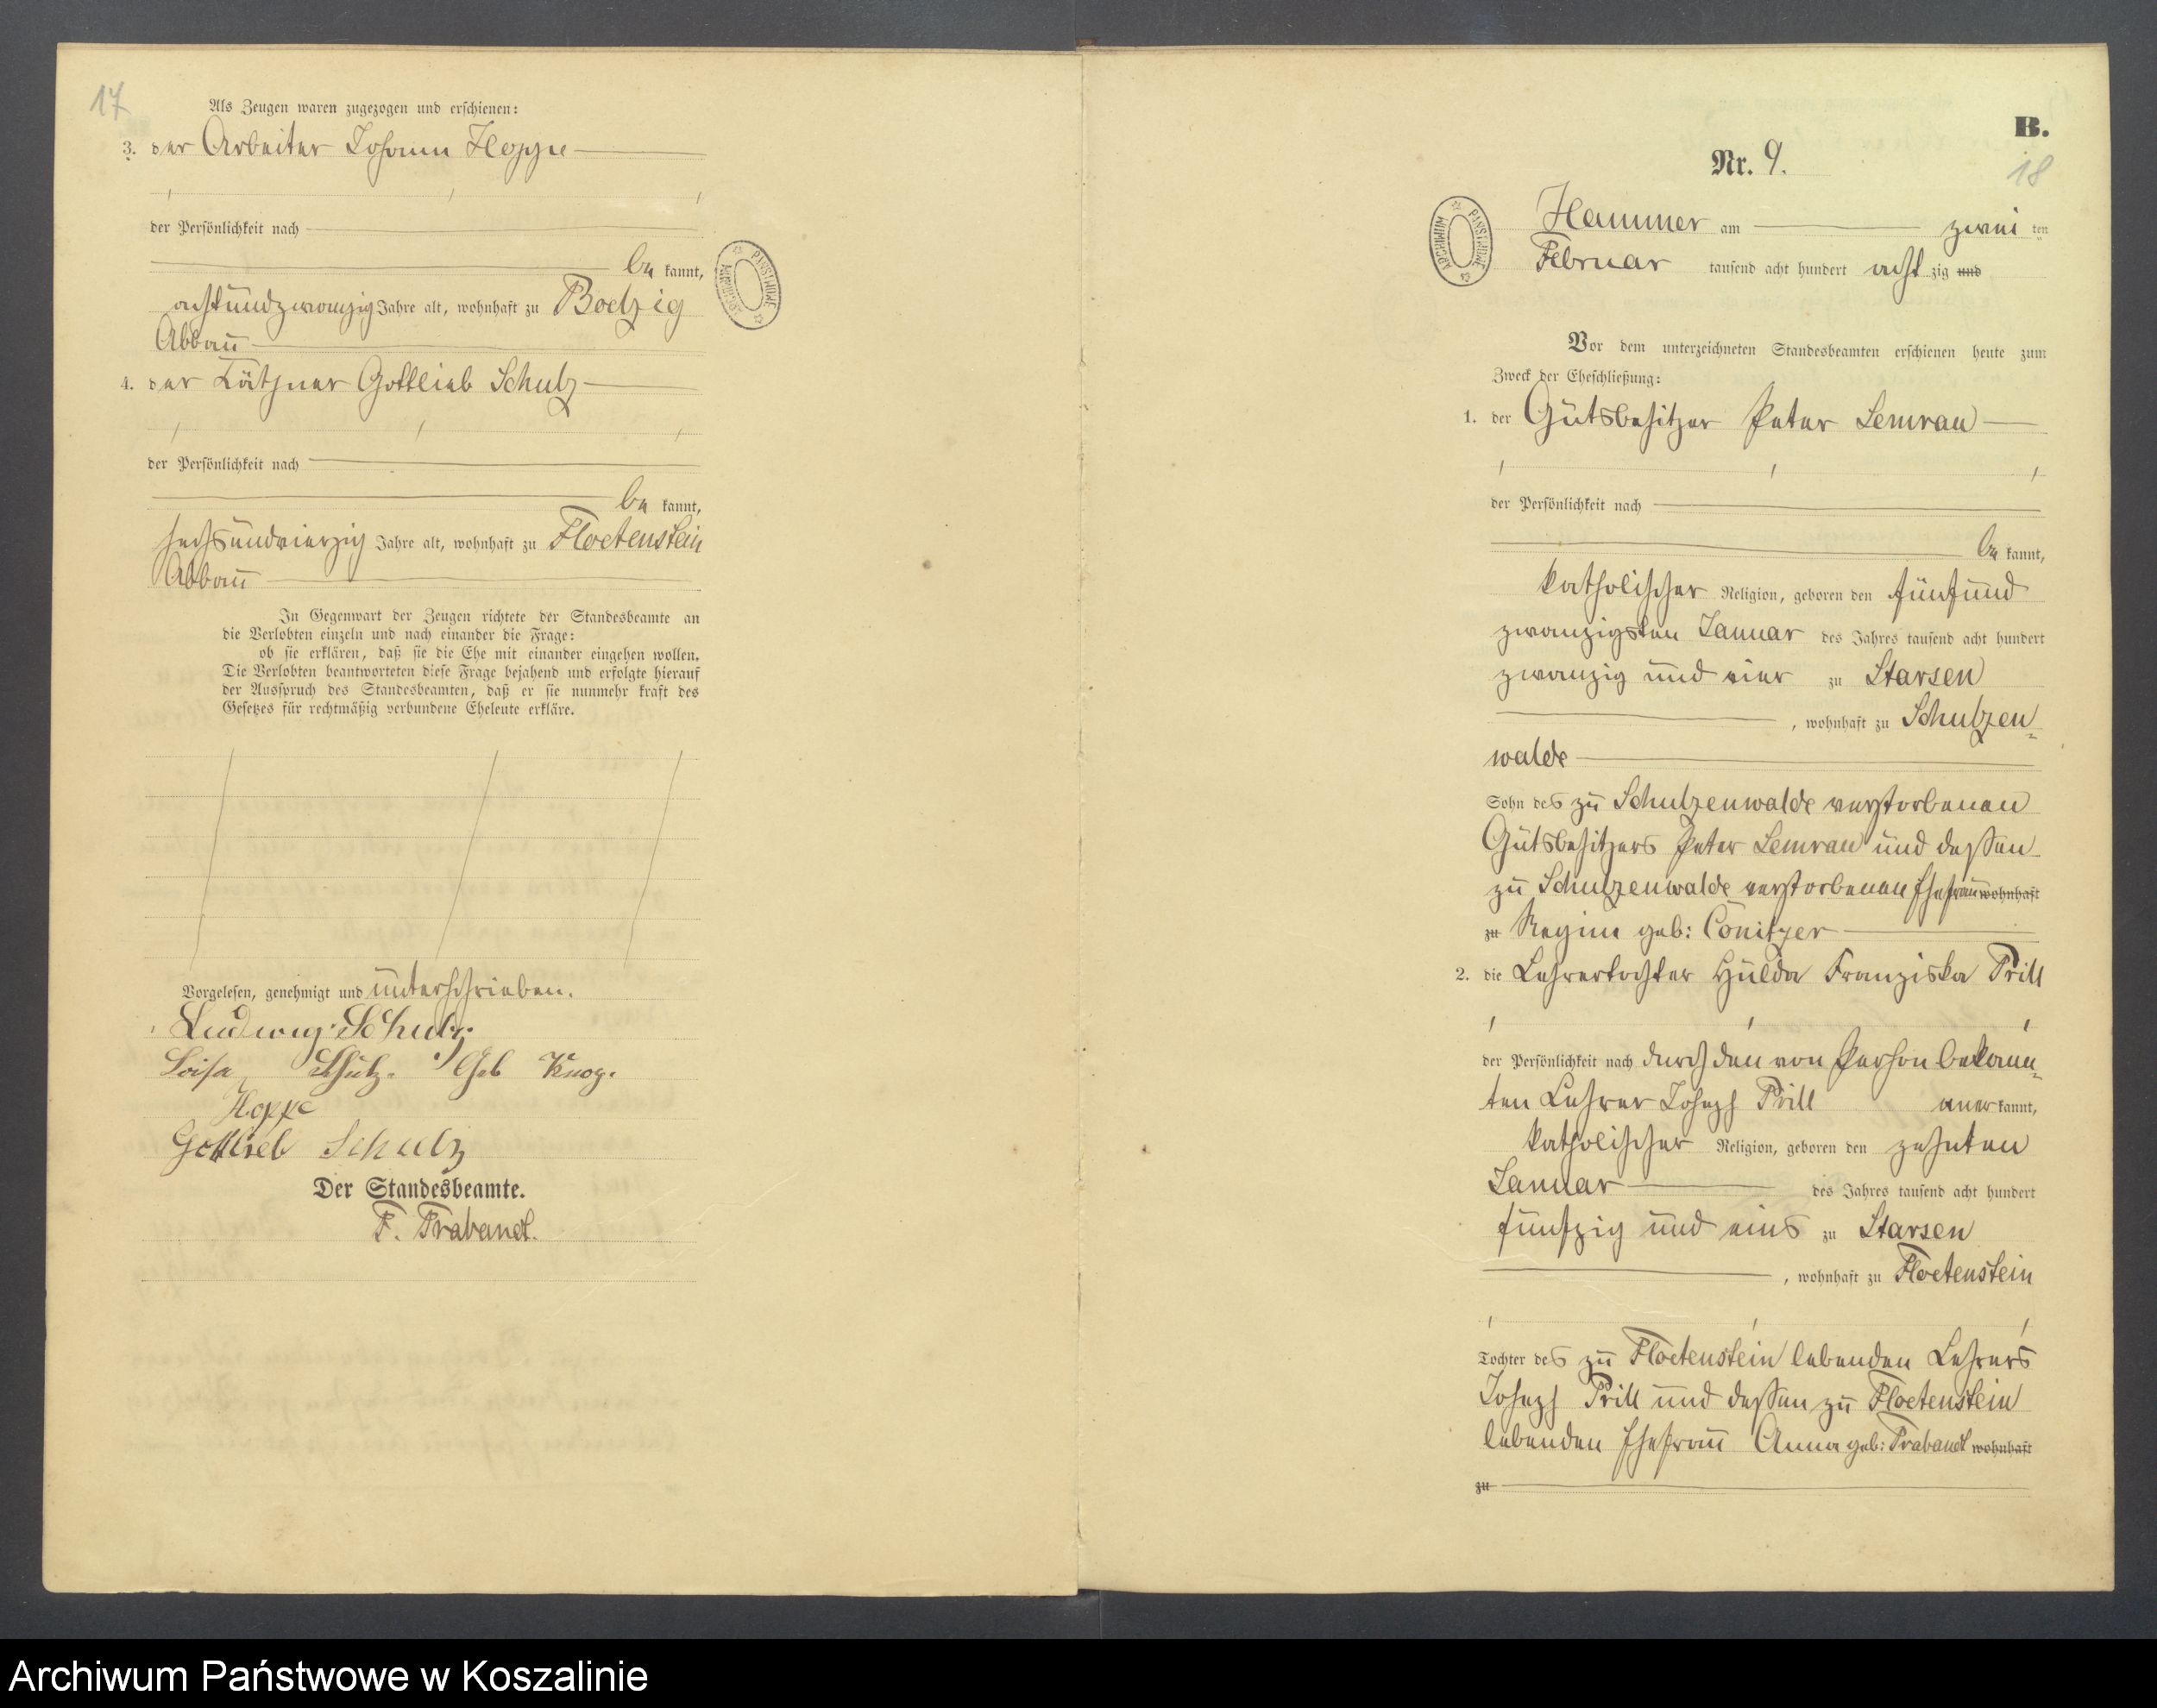 17
Als Zeugen waren zugezogen und erschienen:
3. der Arbeiter Johann Hoppe
der Persönlichkeit nach
be kannt,
achtundzwanzig Jahre alt, wohnhaft zu Boelzig
Abbau
4. der Käthner Gottlieb Schulz
der Persönlichkeit nach
be kannt,
sechsundvierzig Jahre alt, wohnhaft zu Floetenstein
Abbau
In Gegenwart der Zeugen richtete der Standesbeamte an
die Verlobten einzeln und nach einander die Frage:
ob sie erklären, daß sie die Ehe mit einander eingehen wollen.
Die Verlobten beantworteten diese Frage bejahend und erfolgte hierauf
der Ausspruch des Standesbeamten, daß er sie nunmehr kraft des
Gesetzes für rechtmäßig verbundene Eheleute erkläre.
Vorgelesen, genehmigt und unterschrieben.
Ludwig Schulz
Loisa Schulz. Geb
Hoppe
Gottlieb Schulz
Der Standesbeamte.
F. Trabandt.
ARCHIWUM PAŃSTWOWE
B.
18
Nr. 9.
ARCHIWUM PAŃSTWOWE
Hammer am zwei ten
Februar tausend acht hundert acht zig und
Vor dem unterzeichneten Standesbeamten erschienen heute zum
Zweck der Eheschließung:
1. der Gutsbesitzer Peter Semrau
der Persönlichkeit nach
be kannt,
katholischer Religion, geboren den fünfund
zwanzigsten Januar des Jahres tausend acht hundert
zwanzig und vier zu Starsen
, wohnhaft zu Schulzen=
walde
Sohn des zu Schulzenwalde verstorbenen
Gutsbesitzers Peter Semrau und dessen
zu Schulzenwalde verstorbenen Ehefrau wohnhaft
zu Regine geb: Conitzer
2. die Lehrertochter Hulda Franziska Prill
der Persönlichkeit nach durch den von Person bekann=
ten Lehrer Joseph Prill aner kannt,
katholischer Religion, geboren den zehnten
Januar des Jahres tausend acht hundert
fünfzig und eins zu Starsen
, wohnhaft zu Floetenstein
Tochter des zu Floetenstein lebenden Lehrers
Joseph Prill und dessen zu Floetenstein
lebenden Ehefrau Anna geb: Trabandt wohnhaft
zu
Archiwum Państwowe w Koszalinie